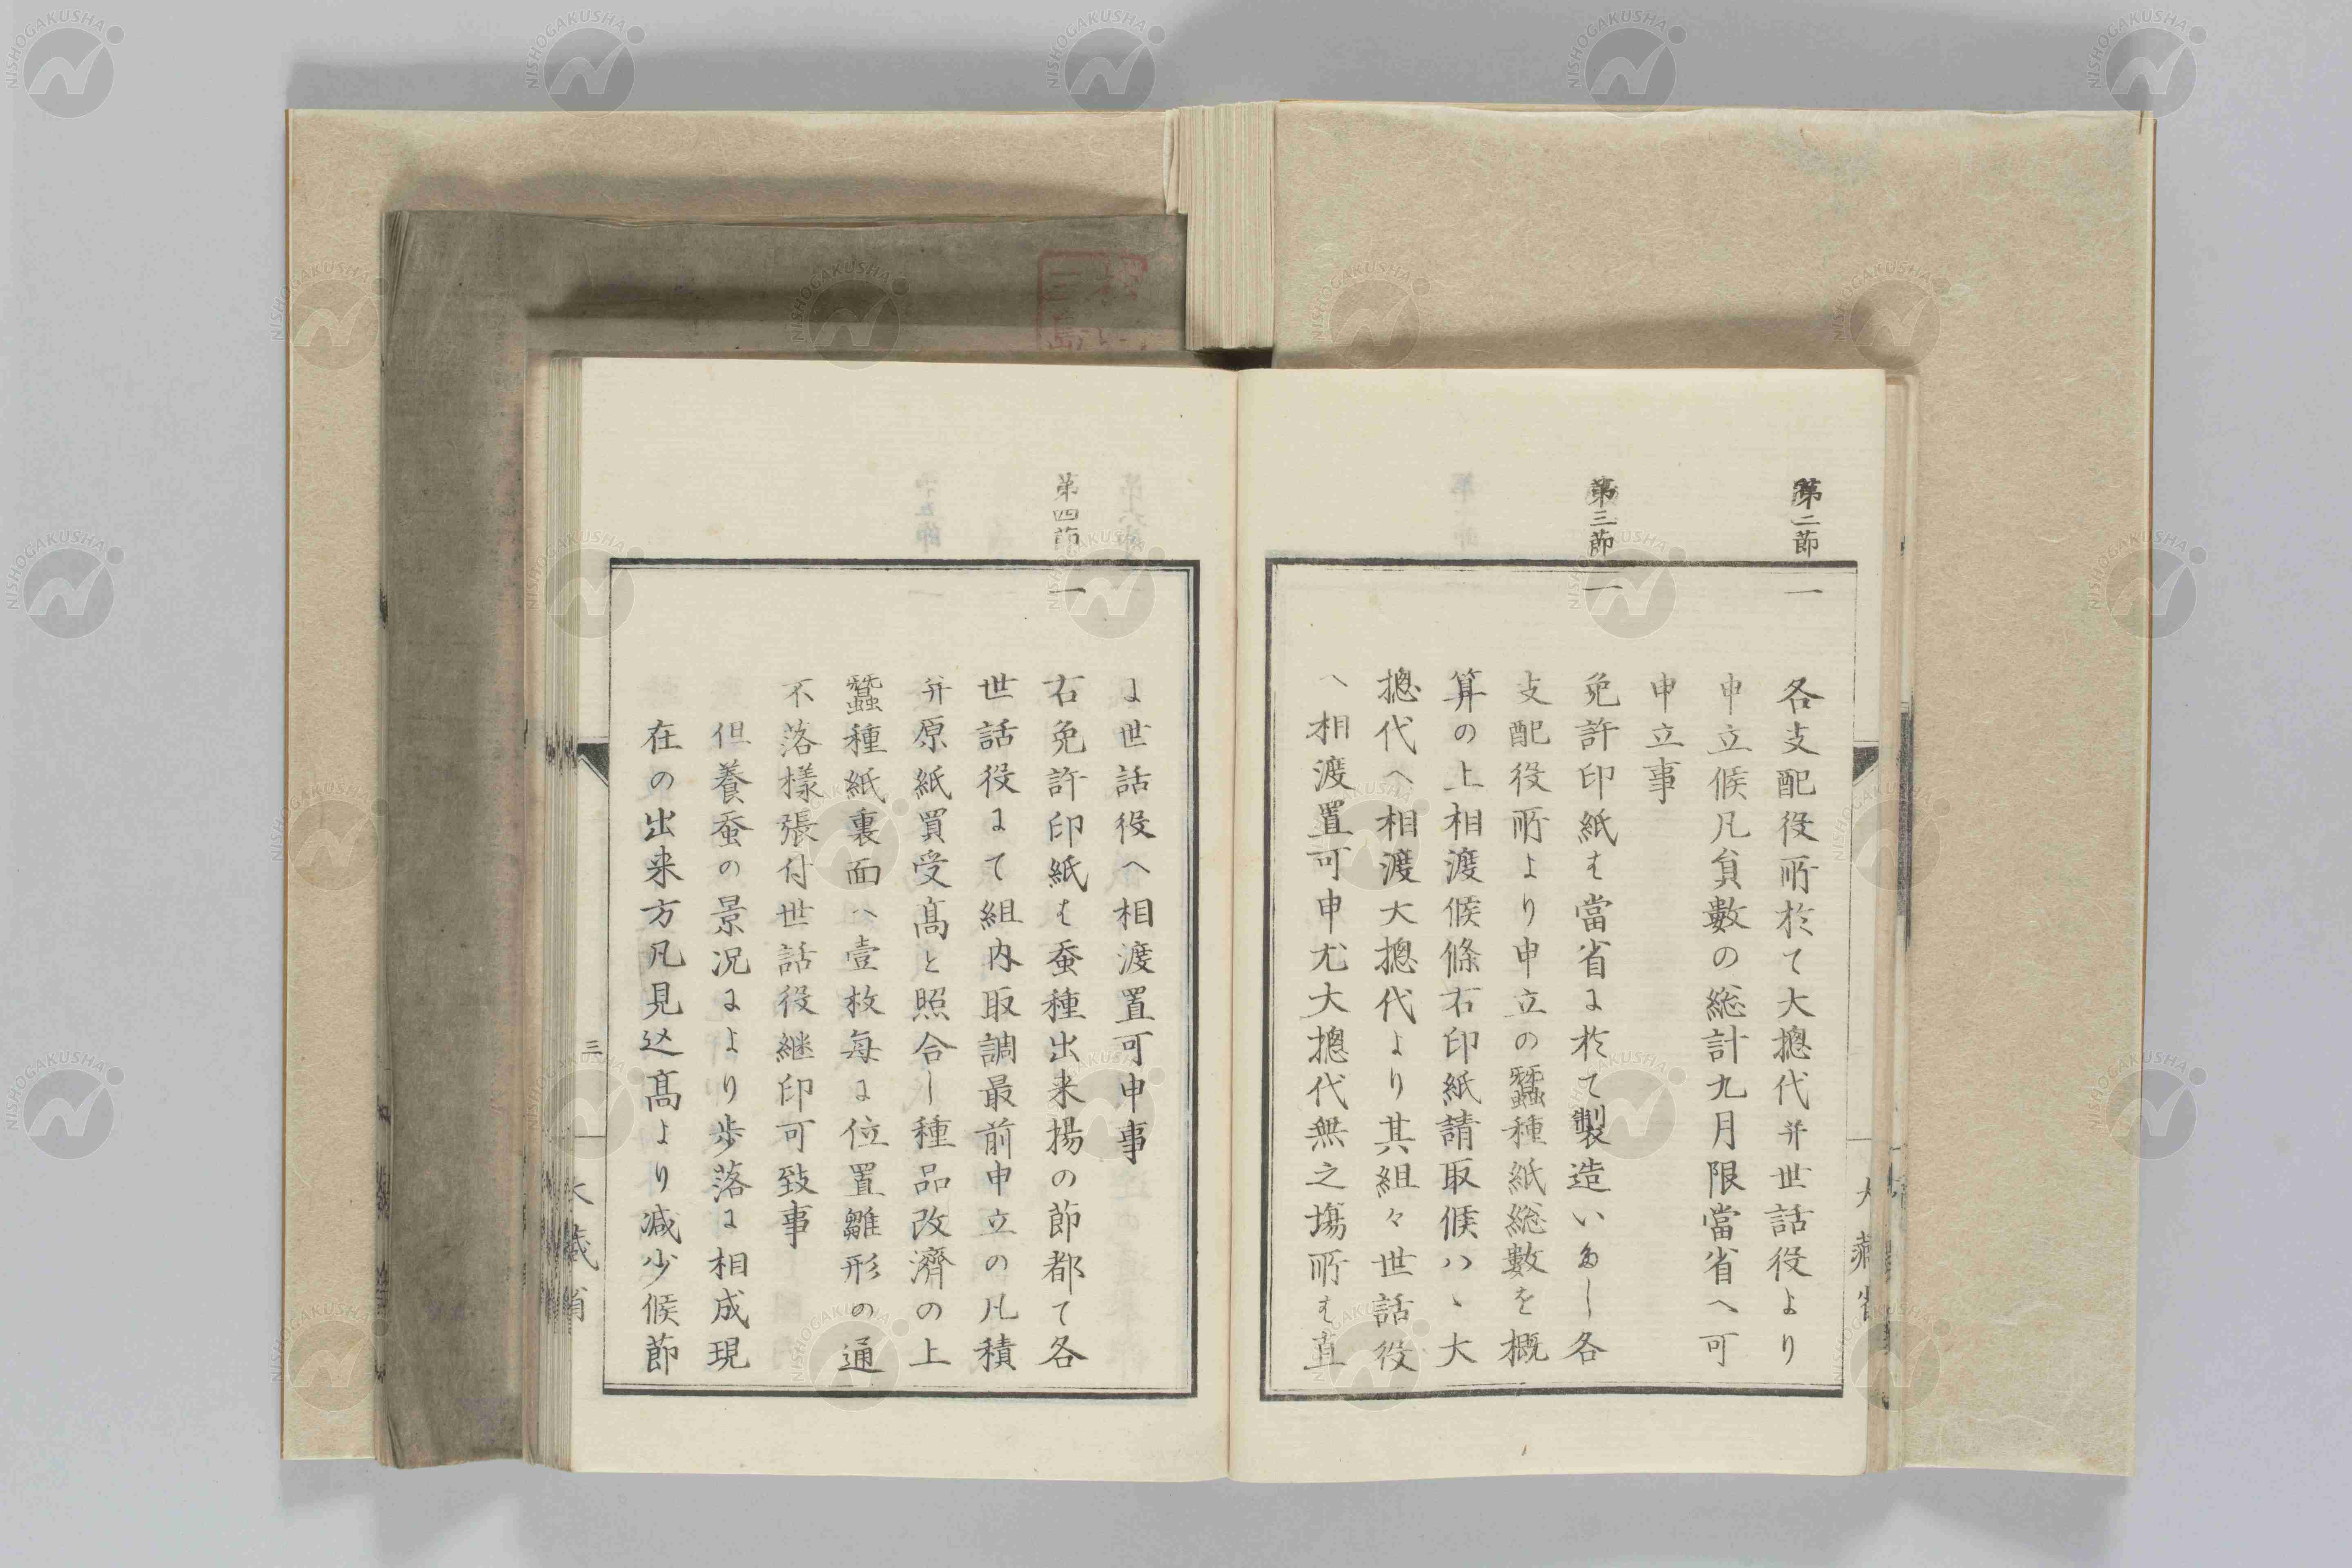 第二節
一 各支配役所於て大摠代并世話役より
申立候凡員數の総計九月限當省へ可
申立事
第三節
一 免許印紙は當省に於て製造いたし各
支配役所より申立の蠶種紙総數を概
算の上相渡候條右印紙請取候ハヽ大
摠代へ相渡大摠代より其組々世話役
へ相渡置可申尤大摠代無之塲所は直
大藏省
に世話役へ相渡置可申事
第四節
一 右免許印紙は蚕種出来揚の節都て各
世話役にて組内取調最前申立の凡積
并原紙買受髙と照合し種品改濟の上
蠶種紙裏面へ壹枚每に位置雛形の通
不落樣張付世話役継印可致事
但養蚕の景况により歩落に相成現
在の出来方凡見込髙より減少候節
三
大藏省
NISHOGAKUSHA